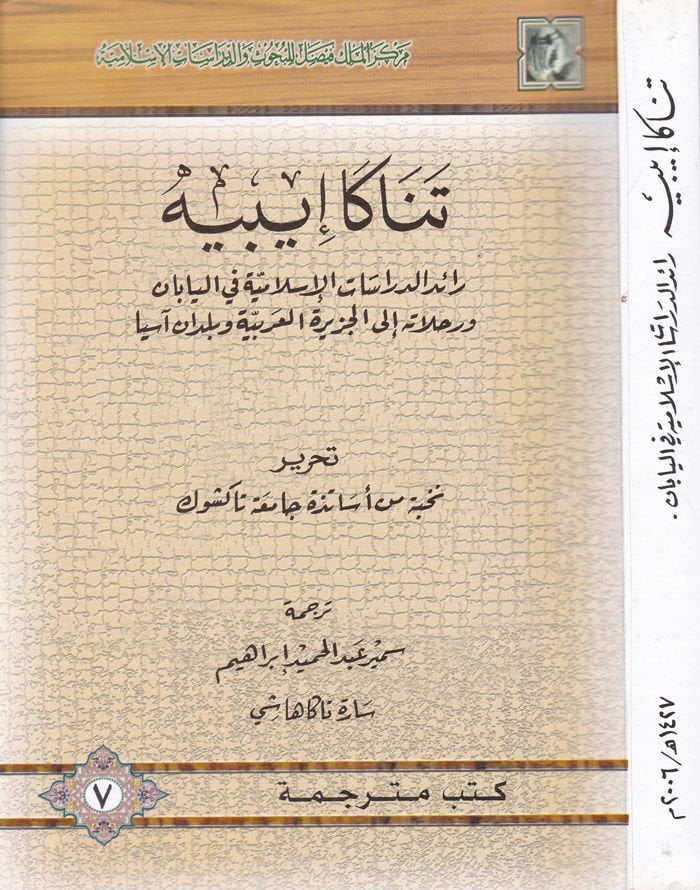 مركز الملك فيصل للبحوث والدراسات الإسلامية
تَنَاكَا إيبيه
رائد الدراسات الإسلاميّة في اليابان
ورحلاته إلى الجزيرة العربيّة وبلدان آسيا
تحرير
نخبة من أساتذة جامعة تاكشوك
ترجمة
سمير عبد الحميد إبراهيم
سارة تاكاهاشي
كتب مترجمة
٧
تناكا إيبيه رائد الدراسات الإسلامية في اليابان.
١٤٢٧هـ/٢٠٠٦م